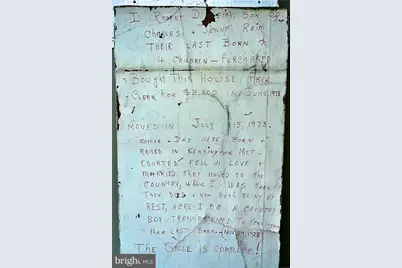 I ROBERT D. REIM, SON OF
CHARLES & JENNY REIM
THEIR LAST BORN OF
4 CHILDREN - PURCHASED
& BOUGHT THIS HOUSE, FREE
& CLEAR FOR $2,000 IN JUNE, 1973
MOVED IN JULY 15, 1973.
MOTHER & DAD WERE BORN &
RAISED IN KENSINGTON MET -
COURTED FELL IN LOVE &
MARRIED. THEY MOVED TO THE
COUNTRY, WHERE I WAS BORN
THEY DIED & NOW BOTH BEING AT
REST, HERE I BE A COUNTRY
BOY - TRANSPLANTED TO
THEIR LAST BORN
THE CIRCLE IS COMPLETE!
bright MLS